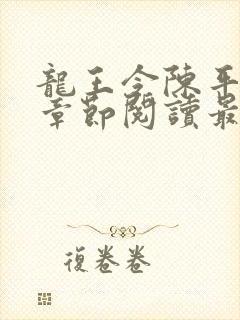 龍王令陳平
章節閱讀最
復卷卷